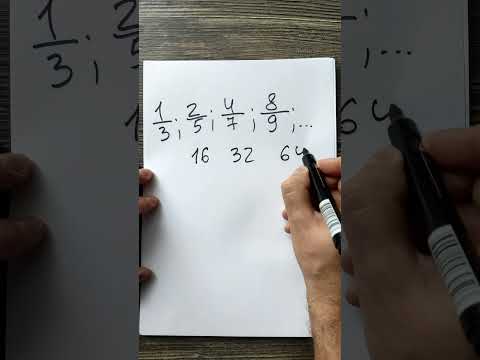 1/3 ; 2/5 ; 4/7 ; 8/9 ; ...
16 32 64